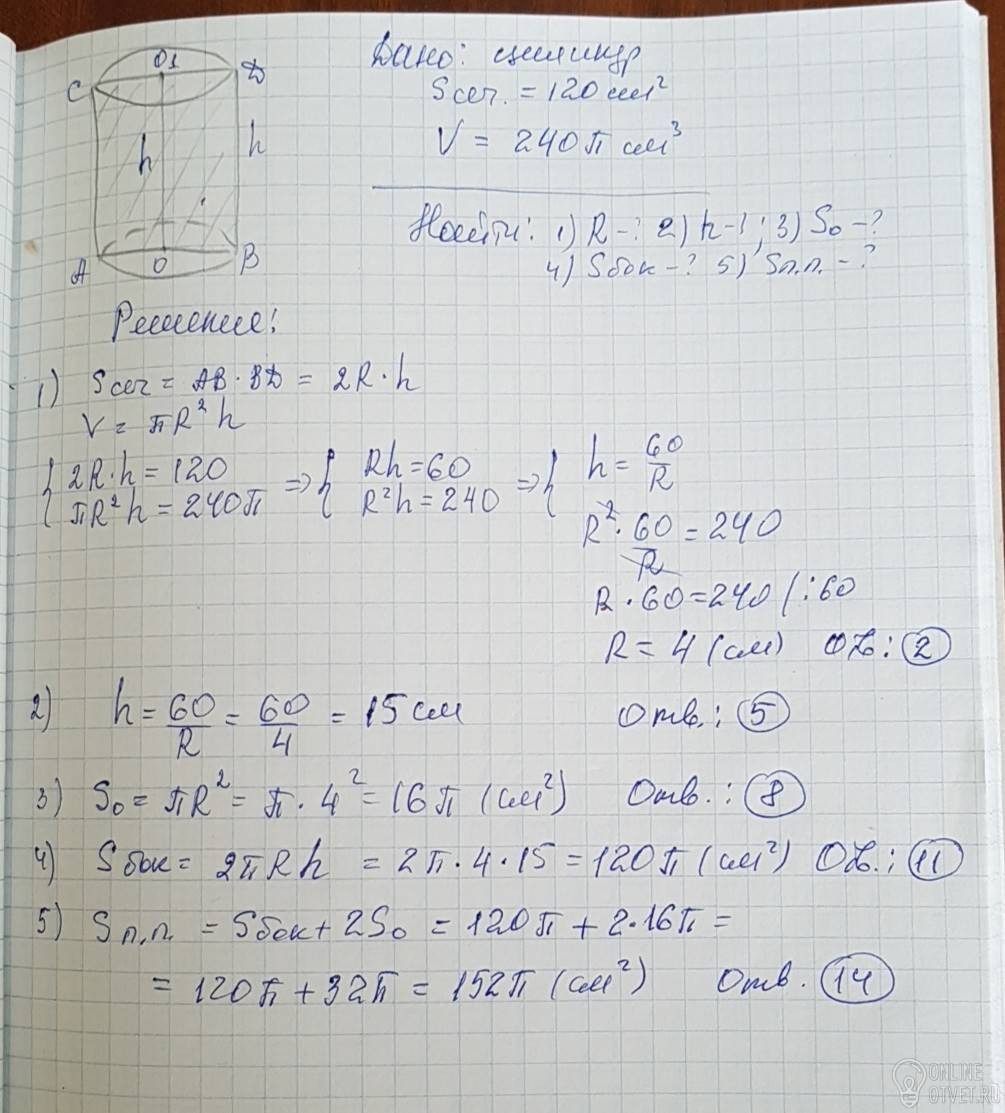 O1
C D
h h
A O B
Дано: цилиндр
Sсеч. = 120 см²
V = 240π см³
Найти: 1) R-? 2) h-?; 3) S₀-?
4) Sбок-? 5) Sп.п.-?
Решение:
1) Sсеч = AB · BD = 2R · h
V = πR²h
{ 2R·h = 120 => { Rh = 60 => { h = 60/R
πR²h = 240π R²h = 240 R² · 60/R = 240
R · 60 = 240 /:60
R = 4 (см) От: 2
2) h = 60/R = 60/4 = 15 см Отв.: 5
3) S₀ = πR² = π · 4² = 16π (см²) Отв.: 8
4) Sбок = 2πRh = 2π · 4 · 15 = 120π (см²) От.: 11
5) Sп.п. = Sбок + 2S₀ = 120π + 2·16π =
= 120π + 32π = 152π (см²) Отв. 14
ONLINE
OTVET.RU